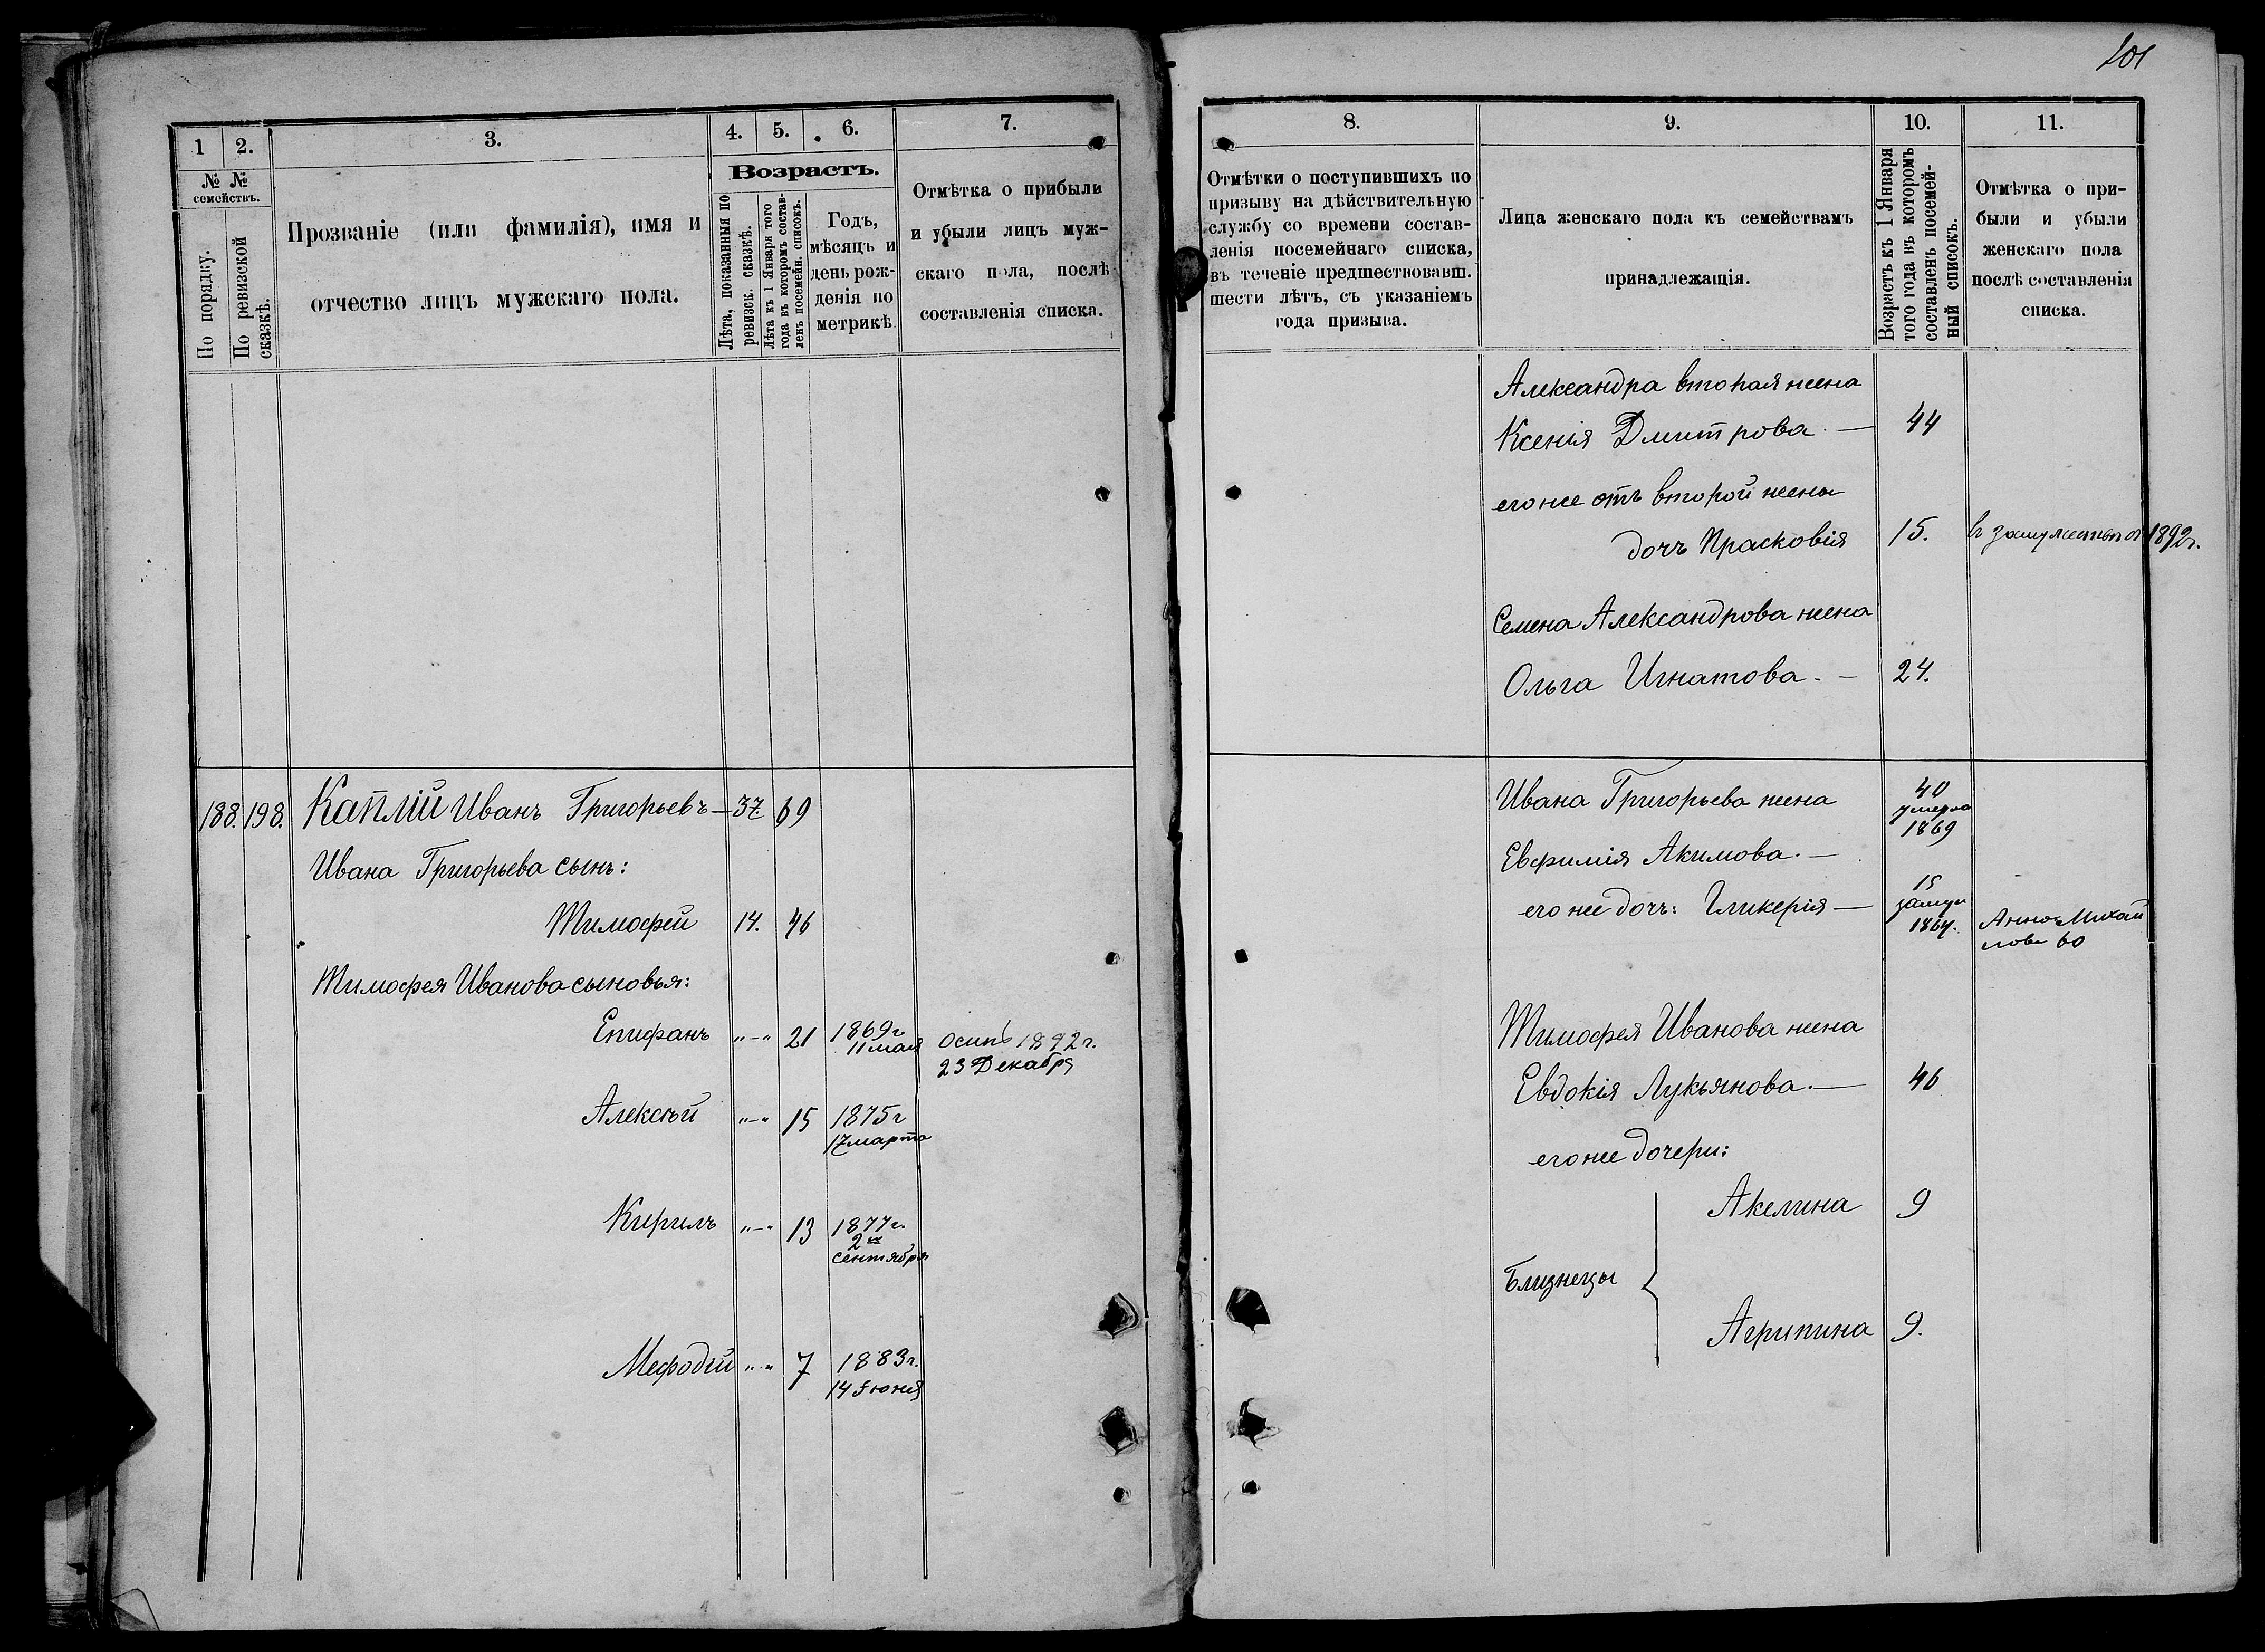 101
1
2.
3.
4.
5.
6.
7.
№ №
семействъ.
По порядку.
По ревизской
сказкѣ.
Прозваніе (или фамилія), имя и
отчество лицъ мужскаго пола.
Возрастъ.
Лѣта, показанныя по
ревизск. сказкѣ.
Лѣта къ 1 Января того
года въ которомъ состав-
ленъ посемейн. списокъ.
Годъ,
мѣсяцъ и
день рож-
денія по
метрикѣ
Отмѣтка о прибыли
и убыли лицъ муж-
скаго пола, послѣ
составленія списка.
188. 198. Каплій Иванъ Григорьевъ — 37. 69
Ивана Григорьева сынъ:
Тимофей 14. 46
Тимофея Иванова сыновья:
Епифанъ „—„ 21 1869г. Осипъ 1892г.
11 мая 23 Декабря
Алексѣй „—„ 15 1875г
17 марта
Кирилъ „—„ 13 1877г.
2го
сентября
Мефодій „ „ 7 1883г.
14 Іюня
8.
9.
10.
11.
Отмѣтки о поступившихъ по
призыву на дѣйствительную
службу со времени состав-
ленія посемейнаго списка,
въ теченіе предшествовавш.
шести лѣтъ, съ указаніемъ
года призыва.
Лица женскаго пола къ семействамъ
принадлежащія.
Возрастъ къ 1 Января
того года въ которомъ
составленъ посемей-
ный списокъ.
Отмѣтка о при-
были и убыли
женскаго пола
послѣ составленія
списка.
Александра вторая жена
Ксенія Дмитрова. — 44
его же отъ второй жены
дочъ Прасковія 15. въ замужествѣ 1892г.
Семена Александрова жена
Ольга Игнатова. — 24.
Ивана Григорьева жена 40
умерла
1869
Евфимія Акимова. —
его же дочъ: Гликерія — 15
замуж
1864. Анна Михай
лова 60
Тимофея Иванова жена
Евдокія Лукьянова. — 46
его же дочери:
Акелина 9
Близнецы
Агрипина 9.